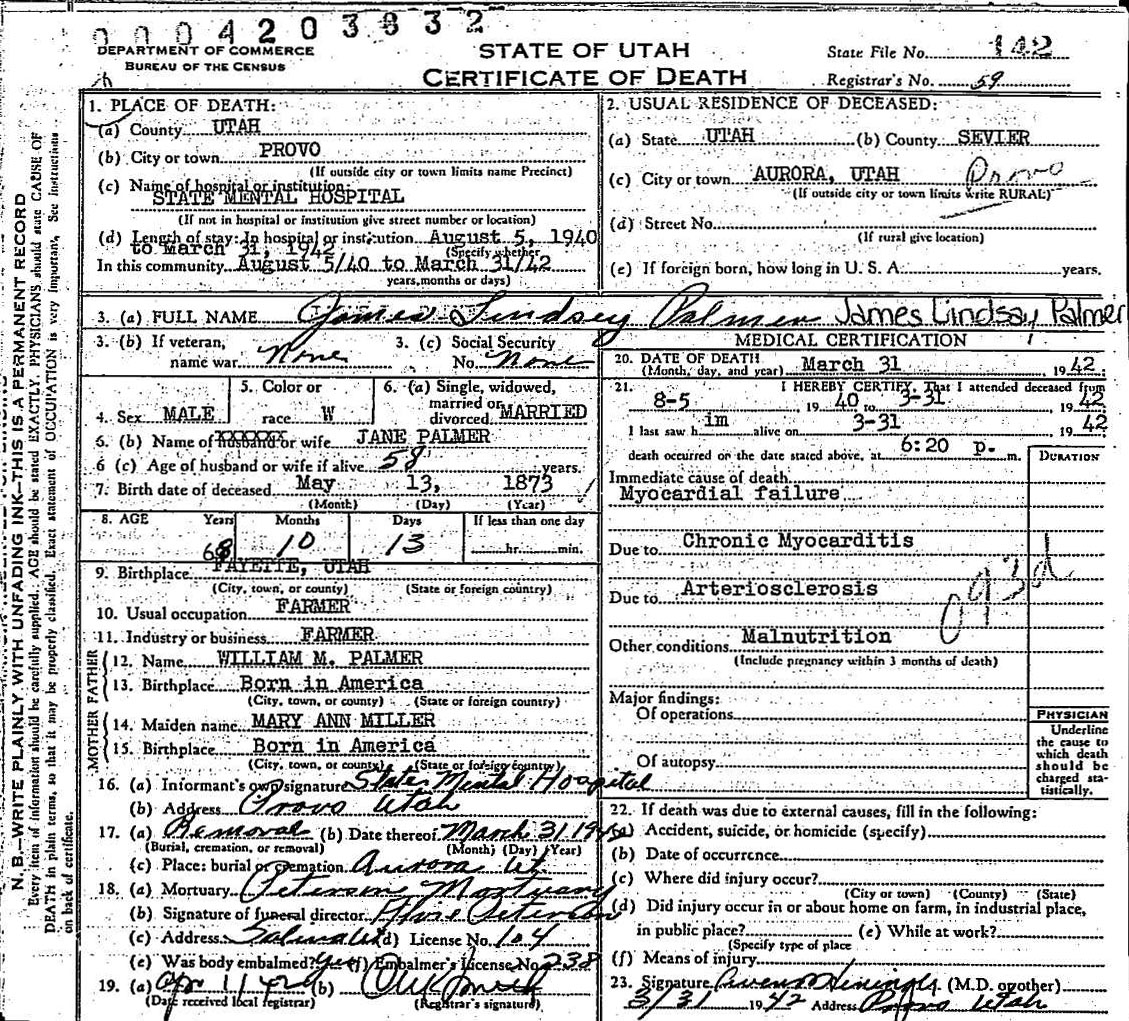 0004203832
DEPARTMENT OF COMMERCE
BUREAU OF THE CENSUS
STATE OF UTAH
CERTIFICATE OF DEATH
State File No. 142
Registrar's No. 59
N. B.—WRITE PLAINLY WITH UNFADING INK—THIS IS A PERMANENT RECORD
Every item of information should be carefully supplied. AGE should be stated EXACTLY. PHYSICIANS should state CAUSE OF
DEATH in plain terms, so that it may be properly classified. Exact statement of OCCUPATION is very important. See instructions
on back of certificate.
1. PLACE OF DEATH:
(a) County UTAH
(b) City or town PROVO
(If outside city or town limits name Precinct)
(c) Name of hospital or institution:
STATE MENTAL HOSPITAL
(If not in hospital or institution give street number or location)
(d) Length of stay: In hospital or institution August 5, 1940
to March 31, 1942 (Specify whether
In this community August 5/40 to March 31/42
years, months or days)
2. USUAL RESIDENCE OF DECEASED:
(a) State UTAH (b) County SEVIER
(c) City or town AURORA, UTAH Provo
(If outside city or town limits write RURAL)
(d) Street No.
(If rural give location)
(e) If foreign born, how long in U. S. A. years.
3. (a) FULL NAME James Lindsey Palmer James Lindsay Palmer
3. (b) If veteran, name war None
3. (c) Social Security No. None
4. Sex MALE
5. Color or race W
6. (a) Single, widowed, married or divorced MARRIED
6. (b) Name of xxxxxx or wife JANE PALMER
6 (c) Age of husband or wife if alive 58 years.
7. Birth date of deceased May 13, 1873
(Month) (Day) (Year)
8. AGE Years Months Days If less than one day
68 10 13 hr. min.
9. Birthplace FAYETTE, UTAH
(City, town, or county) (State or foreign country)
10. Usual occupation FARMER
11. Industry or business FARMER
FATHER
12. Name WILLIAM M. PALMER
13. Birthplace Born in America
(City, town, or county) (State or foreign country)
MOTHER
14. Maiden name MARY ANN MILLER
15. Birthplace Born in America
(City, town, or county) (State or foreign country)
16. (a) Informant's own signature State Mental Hospital
(b) Address Provo Utah
17. (a) Removal (b) Date thereof March 31 1942
(Burial, cremation, or removal) (Month) (Day) (Year)
(c) Place: burial or cremation Aurora Ut
18. (a) Mortuary Peterson Mortuary
(b) Signature of funeral director Peterson
(c) Address Salina Ut (d) License No. 104
(e) Was body embalmed? yes (f) Embalmer's License No 238
19. (a) Apr 1 42 (b)
(Date received local registrar) (Registrar's signature)
MEDICAL CERTIFICATION
20. DATE OF DEATH March 31 1942
(Month, day, and year)
21. I HEREBY CERTIFY, That I attended deceased from
8-5 1940 to 3-31 1942
I last saw h im alive on 3-31 1942
death occurred on the date stated above, at 6:20 p. m.
DURATION
Immediate cause of death
Myocardial failure
Due to Chronic Myocarditis
Due to Arteriosclerosis
093d
Other conditions Malnutrition
(Include pregnancy within 3 months of death)
Major findings:
Of operations
Of autopsy
PHYSICIAN
Underline
the cause to
which death
should be
charged sta-
tistically.
22. If death was due to external causes, fill in the following:
(a) Accident, suicide, or homicide (specify)
(b) Date of occurrence
(c) Where did injury occur?
(City or town) (County) (State)
(d) Did injury occur in or about home on farm, in industrial place,
in public place? (e) While at work?
(Specify type of place
(f) Means of injury
23. Signature (M.D. or other)
3/31 1942 Address Provo Utah